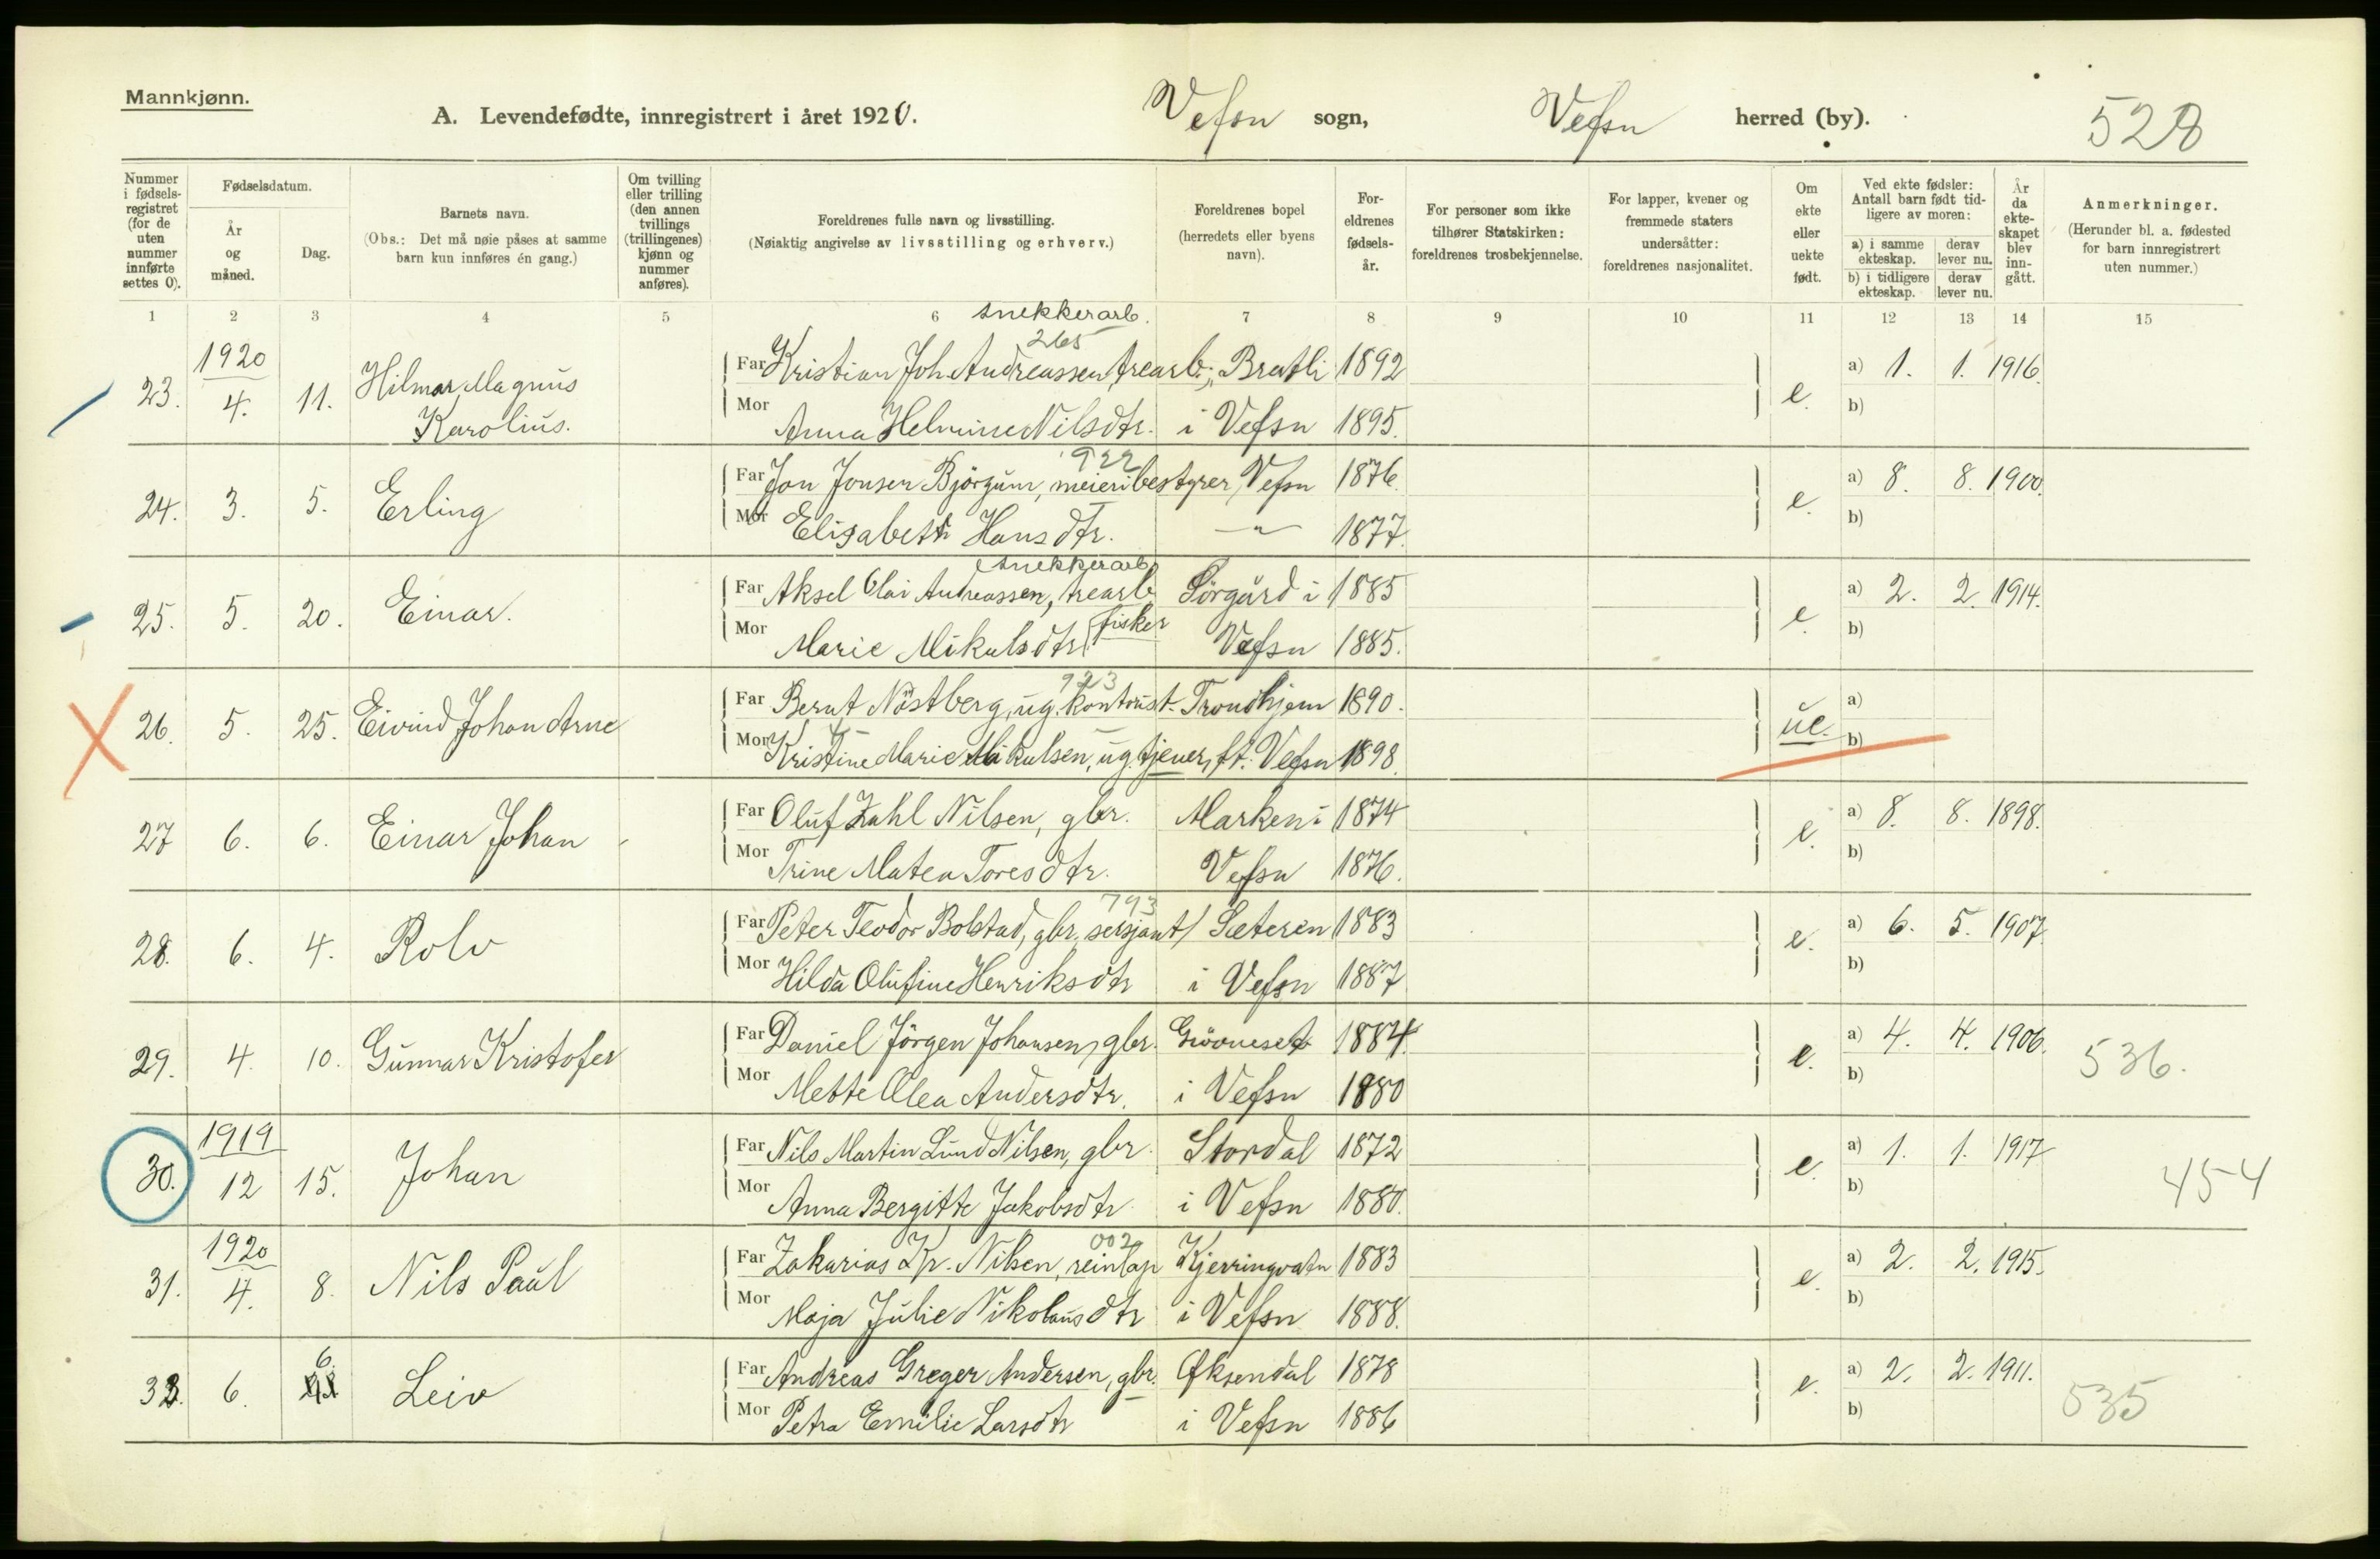 Mannkjønn.
A. Levendefødte, innregistrert i året 1920. Vefsn sogn, Vefsn herred (by). 528
Nummer i fødsels-registret (for de uten nummer innførte settes 0).
Fødselsdatum.
År og måned.
Dag.
Barnets navn.
(Obs.: Det må nøie påses at samme barn kun innføres én gang.)
Om tvilling eller trilling (den annen tvillings (trillingenes) kjønn og nummer anføres).
Foreldrenes fulle navn og livsstilling.
(Nøiaktig angivelse av livsstilling og erhverv.)
Foreldrenes bopel (herredets eller byens navn).
For-eldrenes fødsels-år.
For personer som ikke tilhører Statskirken: foreldrenes trosbekjennelse.
For lapper, kvener og fremmede staters undersåtter: foreldrenes nasjonalitet.
Om ekte eller uekte født.
Ved ekte fødsler: Antall barn født tid-ligere av moren:
a) i samme ekteskap. derav lever nu.
b) i tidligere ekteskap. derav lever nu.
År da ekte-skapet blev inn-gått.
Anmerkninger.
(Herunder bl. a. fødested for barn innregistrert uten nummer.)
1 2 3 4 5 6 7 8 9 10 11 12 13 14 15
snekkerarb.
265
1920
23. 4. 11. Hilmar Magnus Karolius.
Far Kristian Joh. Andreassen, trearb., Bratli 1892 e. a) 1. 1. 1916.
Mor Anna Helmine Nilsdtr. i Vefsn 1895. b)
922
24. 3. 5. Erling
Far Jon Jonsen Björgum, meieribestyrer, Vefsn 1876. e. a) 8. 8. 1900.
Mor Elisabeth Hansdtr. — " — 1877. b)
snekkerarb
25. 5. 20. Einar.
Far Aksel Olai Andreassen, trearb Sörgård i 1885 e. a) 2. 2. 1914.
fisker
Mor Marie Mikalsdtr. Vefsn 1885. b)
923
26. 5. 25. Eivind Johan Arne
Far Bernt Nöstberg, ug. kontorist. Trondhjem 1890. ue. a)
Mor Kristine Marie Mikalsen, ug. tjener, ft. Vefsn 1898. b)
27 6. 6. Einar Johan
Far Oluf Zahl Nilsen, gbr. Marken i 1874 e. a) 8. 8. 1898.
Mor Trine Matea Toresdtr. Vefsn 1876. b)
793
28. 6. 4. Rolv
Far Peter Teodor Bolstad, gbr., sersjant Sæteren 1883 e. a) 6. 5. 1907.
Mor Hilda Olufine Henriksdtr i Vefsn 1887 b)
29. 4. 10. Gunnar Kristofer
Far Daniel Jörgen Johansen, gbr. 1884. e. a) 4. 4. 1906. 536.
Mor Mette Olea Andersdtr. i Vefsn 1880 b)
1919
30. 12 15. Johan
Far Nils Martin Lund Nilsen, gbr. Stordal 1872 e. a) 1. 1. 1917 454
Mor Anna Bergitte Jakobsdtr i Vefsn 1880. b)
1920 002
31. 4. 8. Nils Paul
Far Zakarias Kr. Nilsen, reinlap Kjerringvatn 1883 e. a) 2. 2. 1915.
Mor Maja Julie Nikolausdtr i Vefsn 1888. b)
32. 6. 6. Leiv
Far Andreas Greger Andersen, gbr. Øksendal 1878 e. a) 2. 2. 1911. 535
Mor Petra Emilie Larsdtr i Vefsn 1886 b)